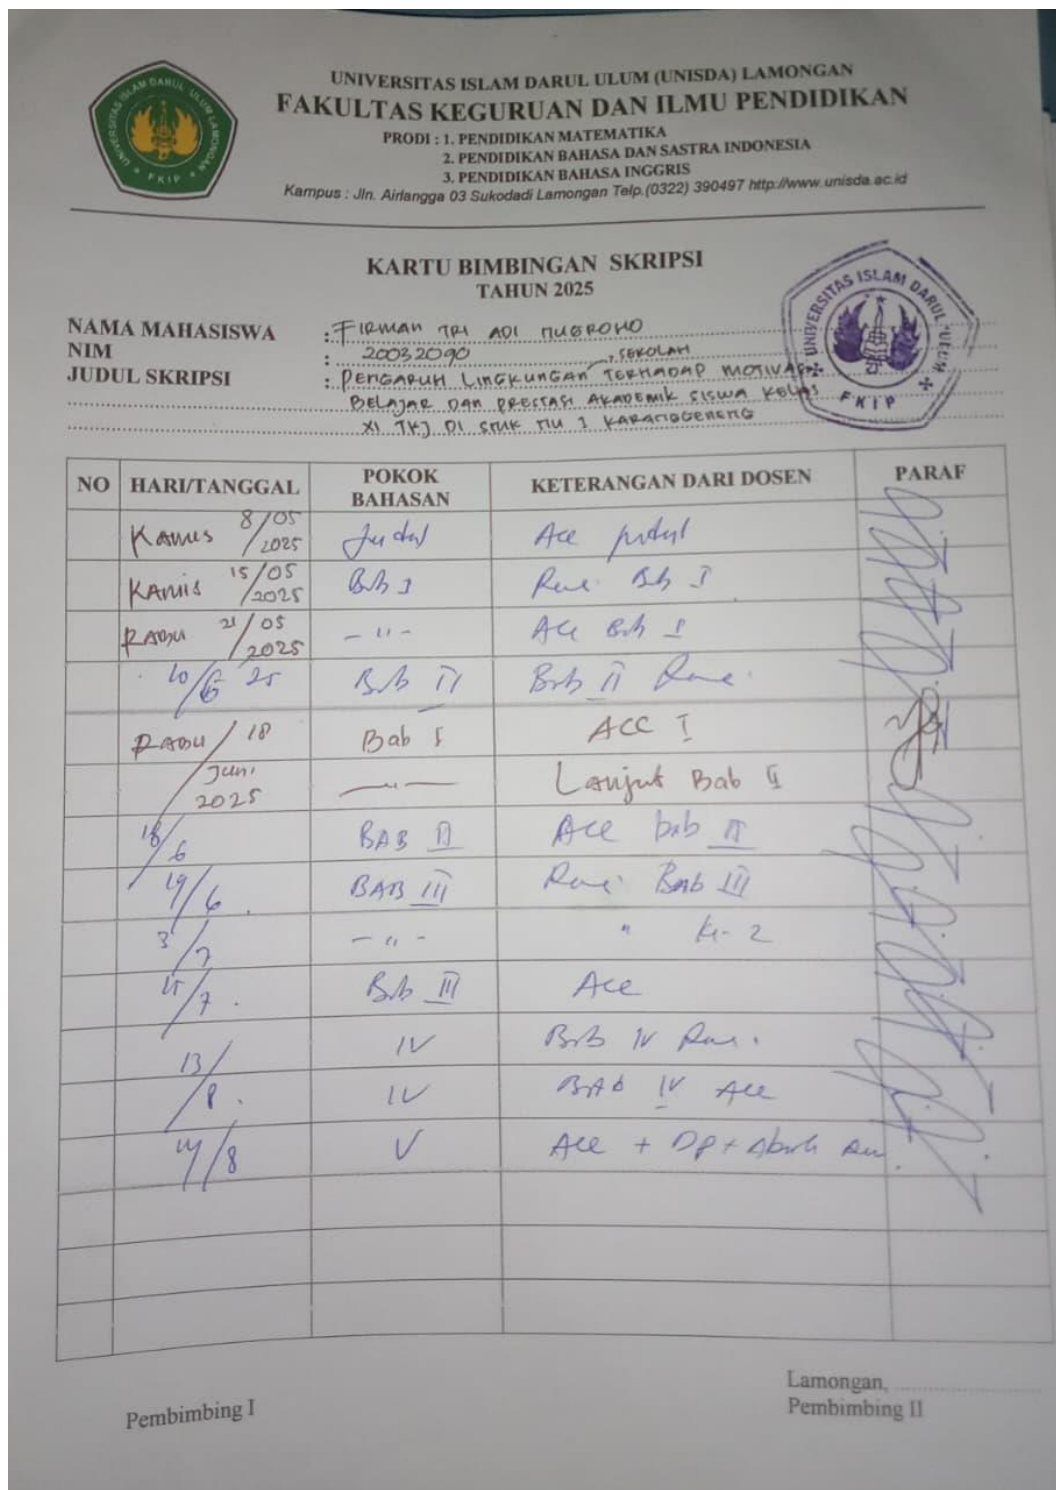 UNIVERSITAS ISLAM DARUL ULUM (UNISDA) LAMONGAN
FAKULTAS KEGURUAN DAN ILMU PENDIDIKAN
PRODI : 1. PENDIDIKAN MATEMATIKA
2. PENDIDIKAN BAHASA DAN SASTRA INDONESIA
3. PENDIDIKAN BAHASA INGGRIS
Kampus : Jln. Airlangga 03 Sukodadi Lamongan Telp.(0322) 390497 http://www.unisda.ac.id
UNIVERSITAS ISLAM DARUL ULUM LAMONGAN
FKIP
KARTU BIMBINGAN SKRIPSI
TAHUN 2025
UNIVERSITAS ISLAM DARUL 'ULUM
FKIP
NAMA MAHASISWA : FIRMAN TRI ADI NUGROHO
NIM : 20032090
JUDUL SKRIPSI : PENGARUH LINGKUNGAN SEKOLAH TERHADAP MOTIVASI
BELAJAR DAN PRESTASI AKADEMIK SISWA KELAS
XI TKJ DI SMK NU 1 KARANGGENENG
NO HARI/TANGGAL POKOK BAHASAN KETERANGAN DARI DOSEN PARAF
Kamis 8/05/2025 Judul Acc judul
KAMIS 15/05/2025 Bab I Bab I
RABU 21/05/2025 - " - Acc Bab I
10/6 25 Bab II Bab II
RABU / 18 Bab I ACC I
Juni 2025 — " — Lanjut Bab II
18/6 BAB II Acc bab II
19/6 BAB III Bab III
3/7 - " - " ke-2
15/7 . Bab III Acc
IV Bab IV
13/8 . IV BAB IV Acc
14/8 V Acc + DP +
Lamongan, ....................
Pembimbing I Pembimbing II